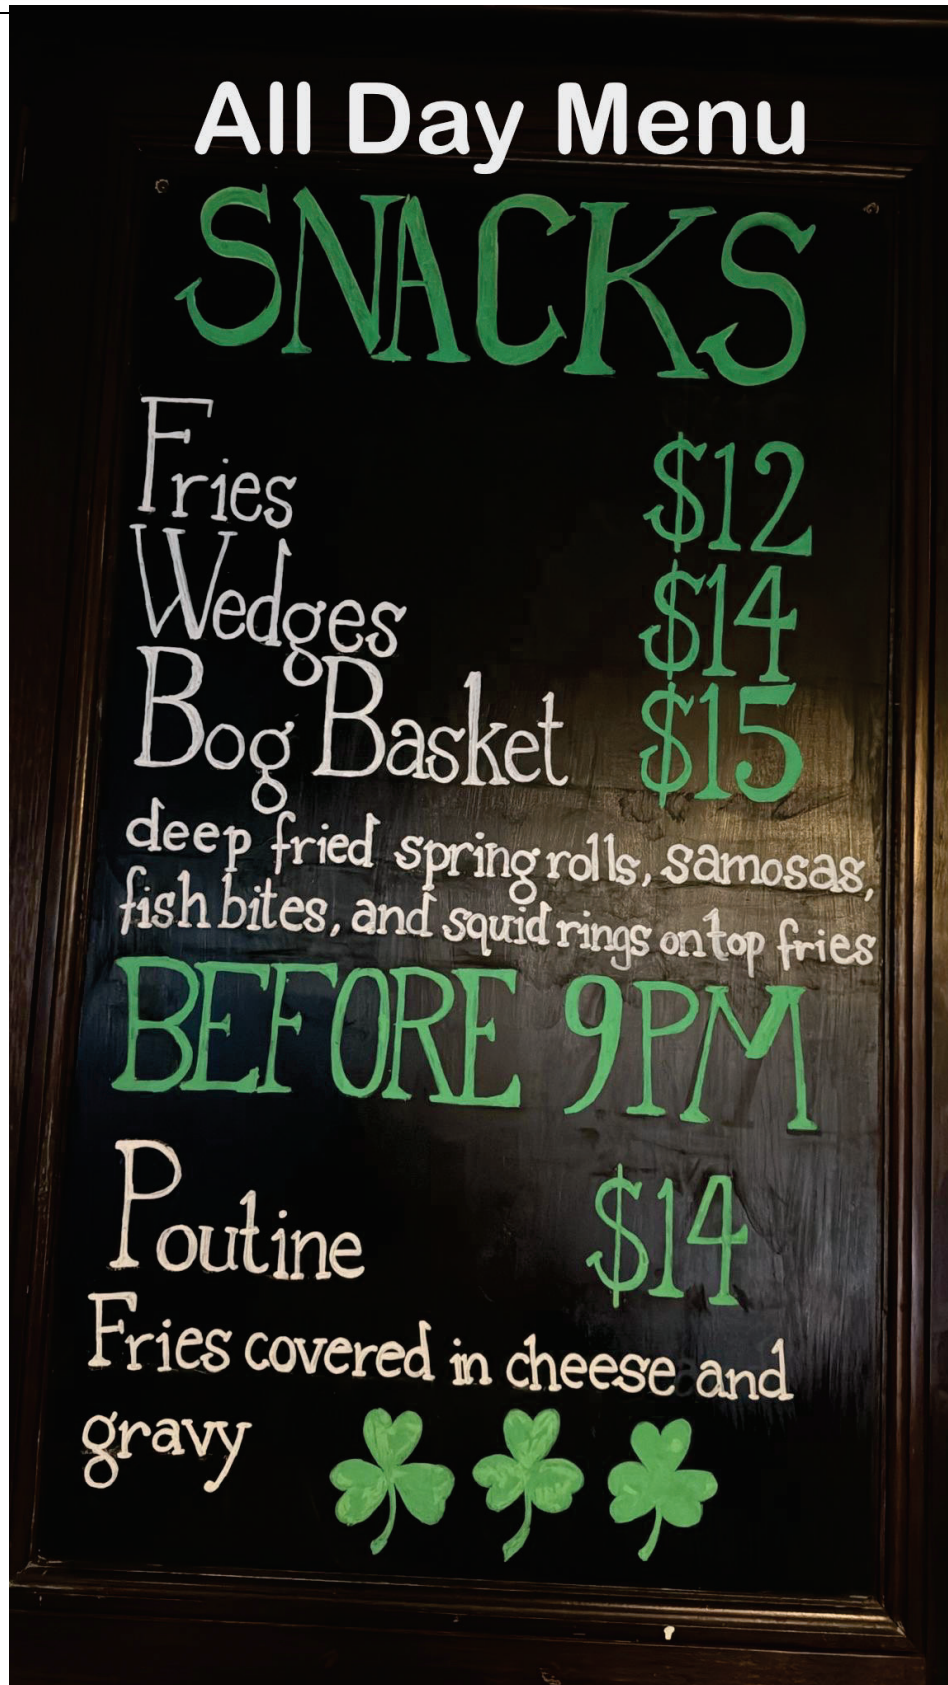 All Day Menu
SNACKS
Fries $12
Wedges $14
Bog Basket $15
deep fried spring rolls, samosas,
fish bites, and squid rings on top fries
BEFORE 9PM
Poutine $14
Fries covered in cheese and
gravy